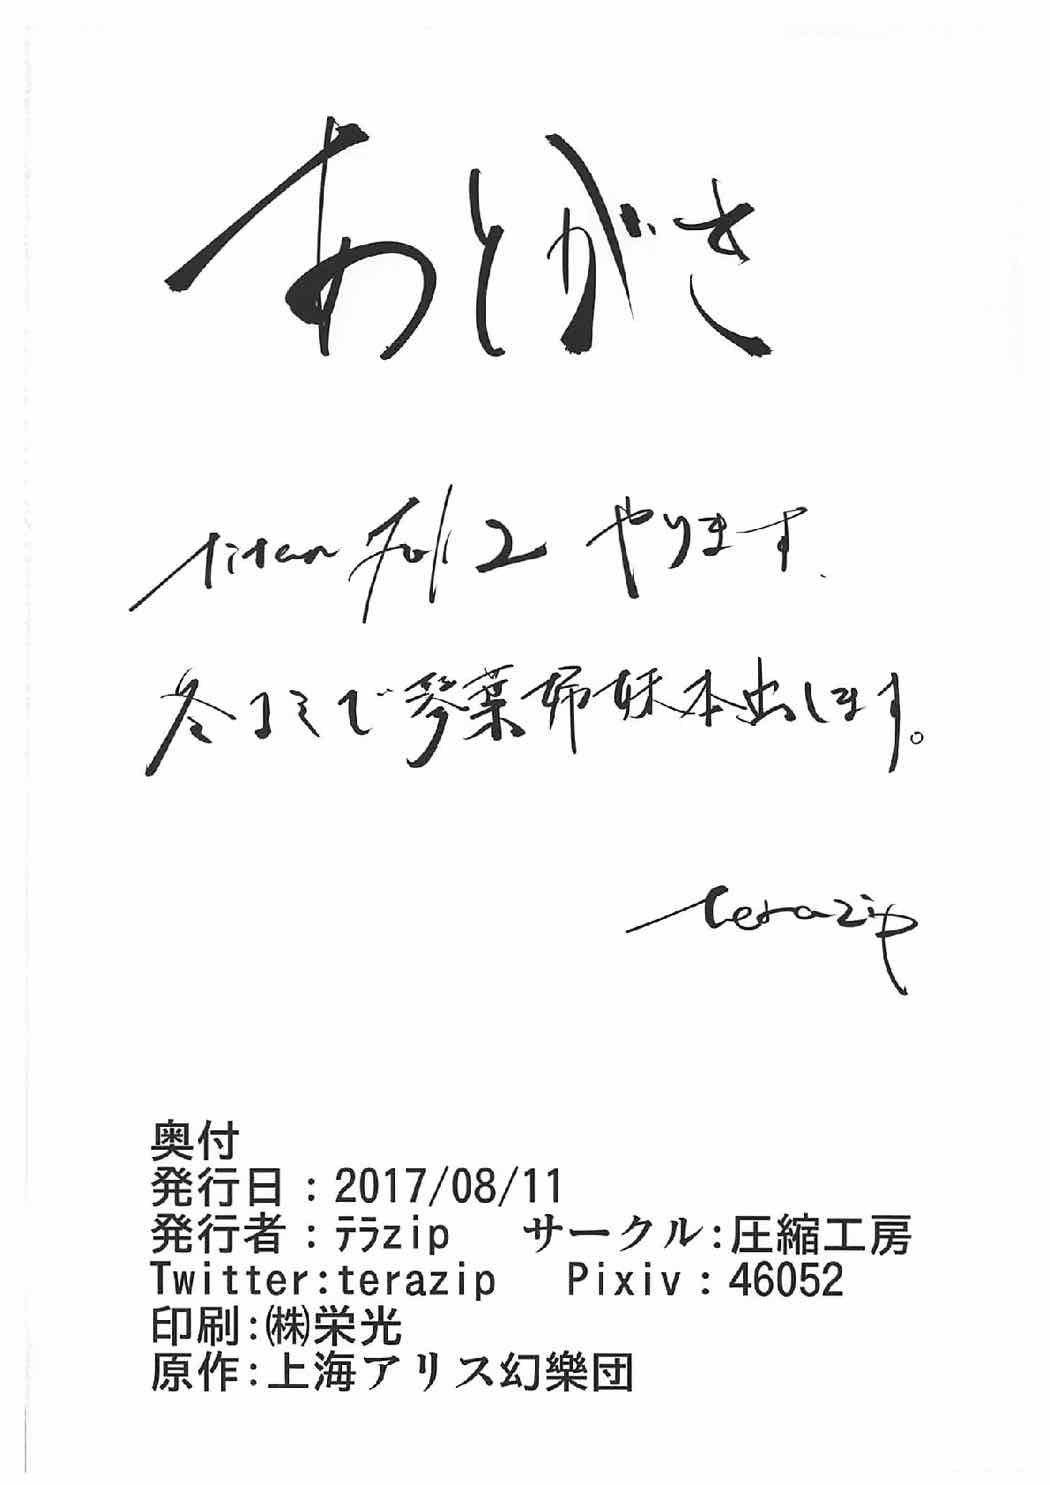 あとがき
titan fall 2 やります.
冬コミで琴葉姉妹本出します。
terazip
奥付
発行日：2017/08/11
発行者：ﾃﾗzip　サークル:圧縮工房
Twitter:terazip　Pixiv：46052
印刷:㈱栄光
原作:上海アリス幻樂団